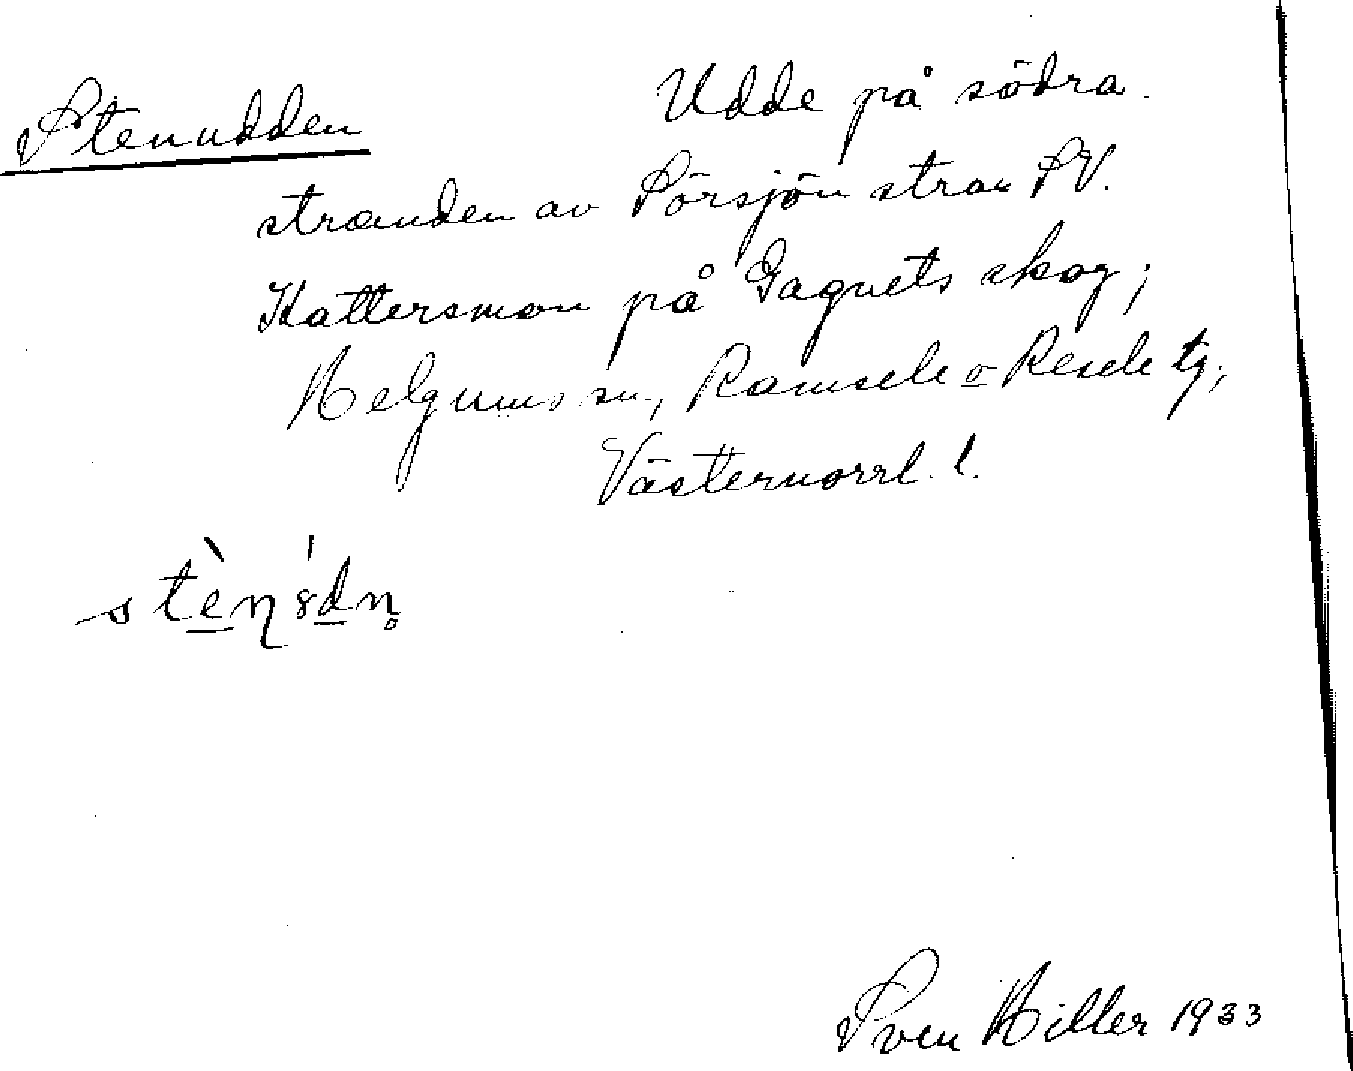 Stenudden Udde på södra
stranden av Sörsjön strax SV.
Kattersmon på Gagnets skog;
Helgums sn, Ramsele o Resele tg,
Västernorrl. l.
Sven Hiller 1933